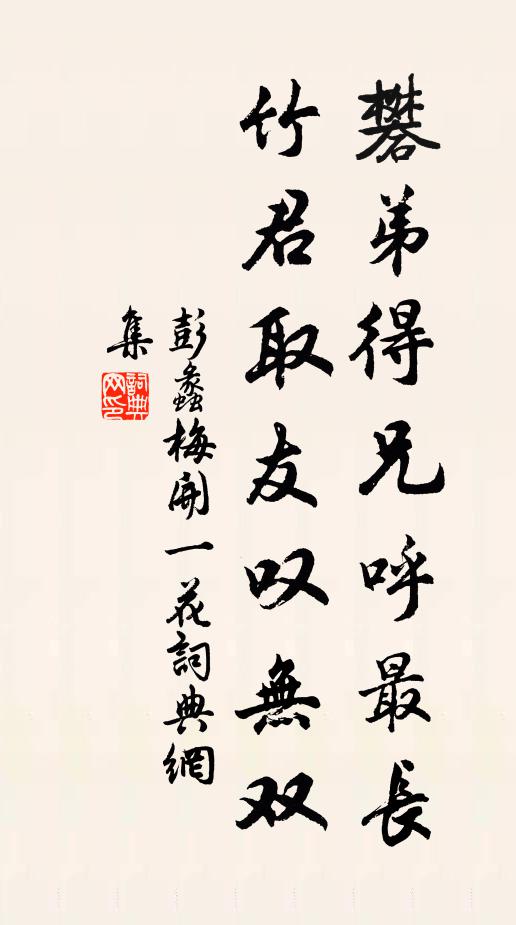 礬弟得兄呼最長
竹君取友叹無双
彭蠡梅開一花詞典網
集
詞典
网印